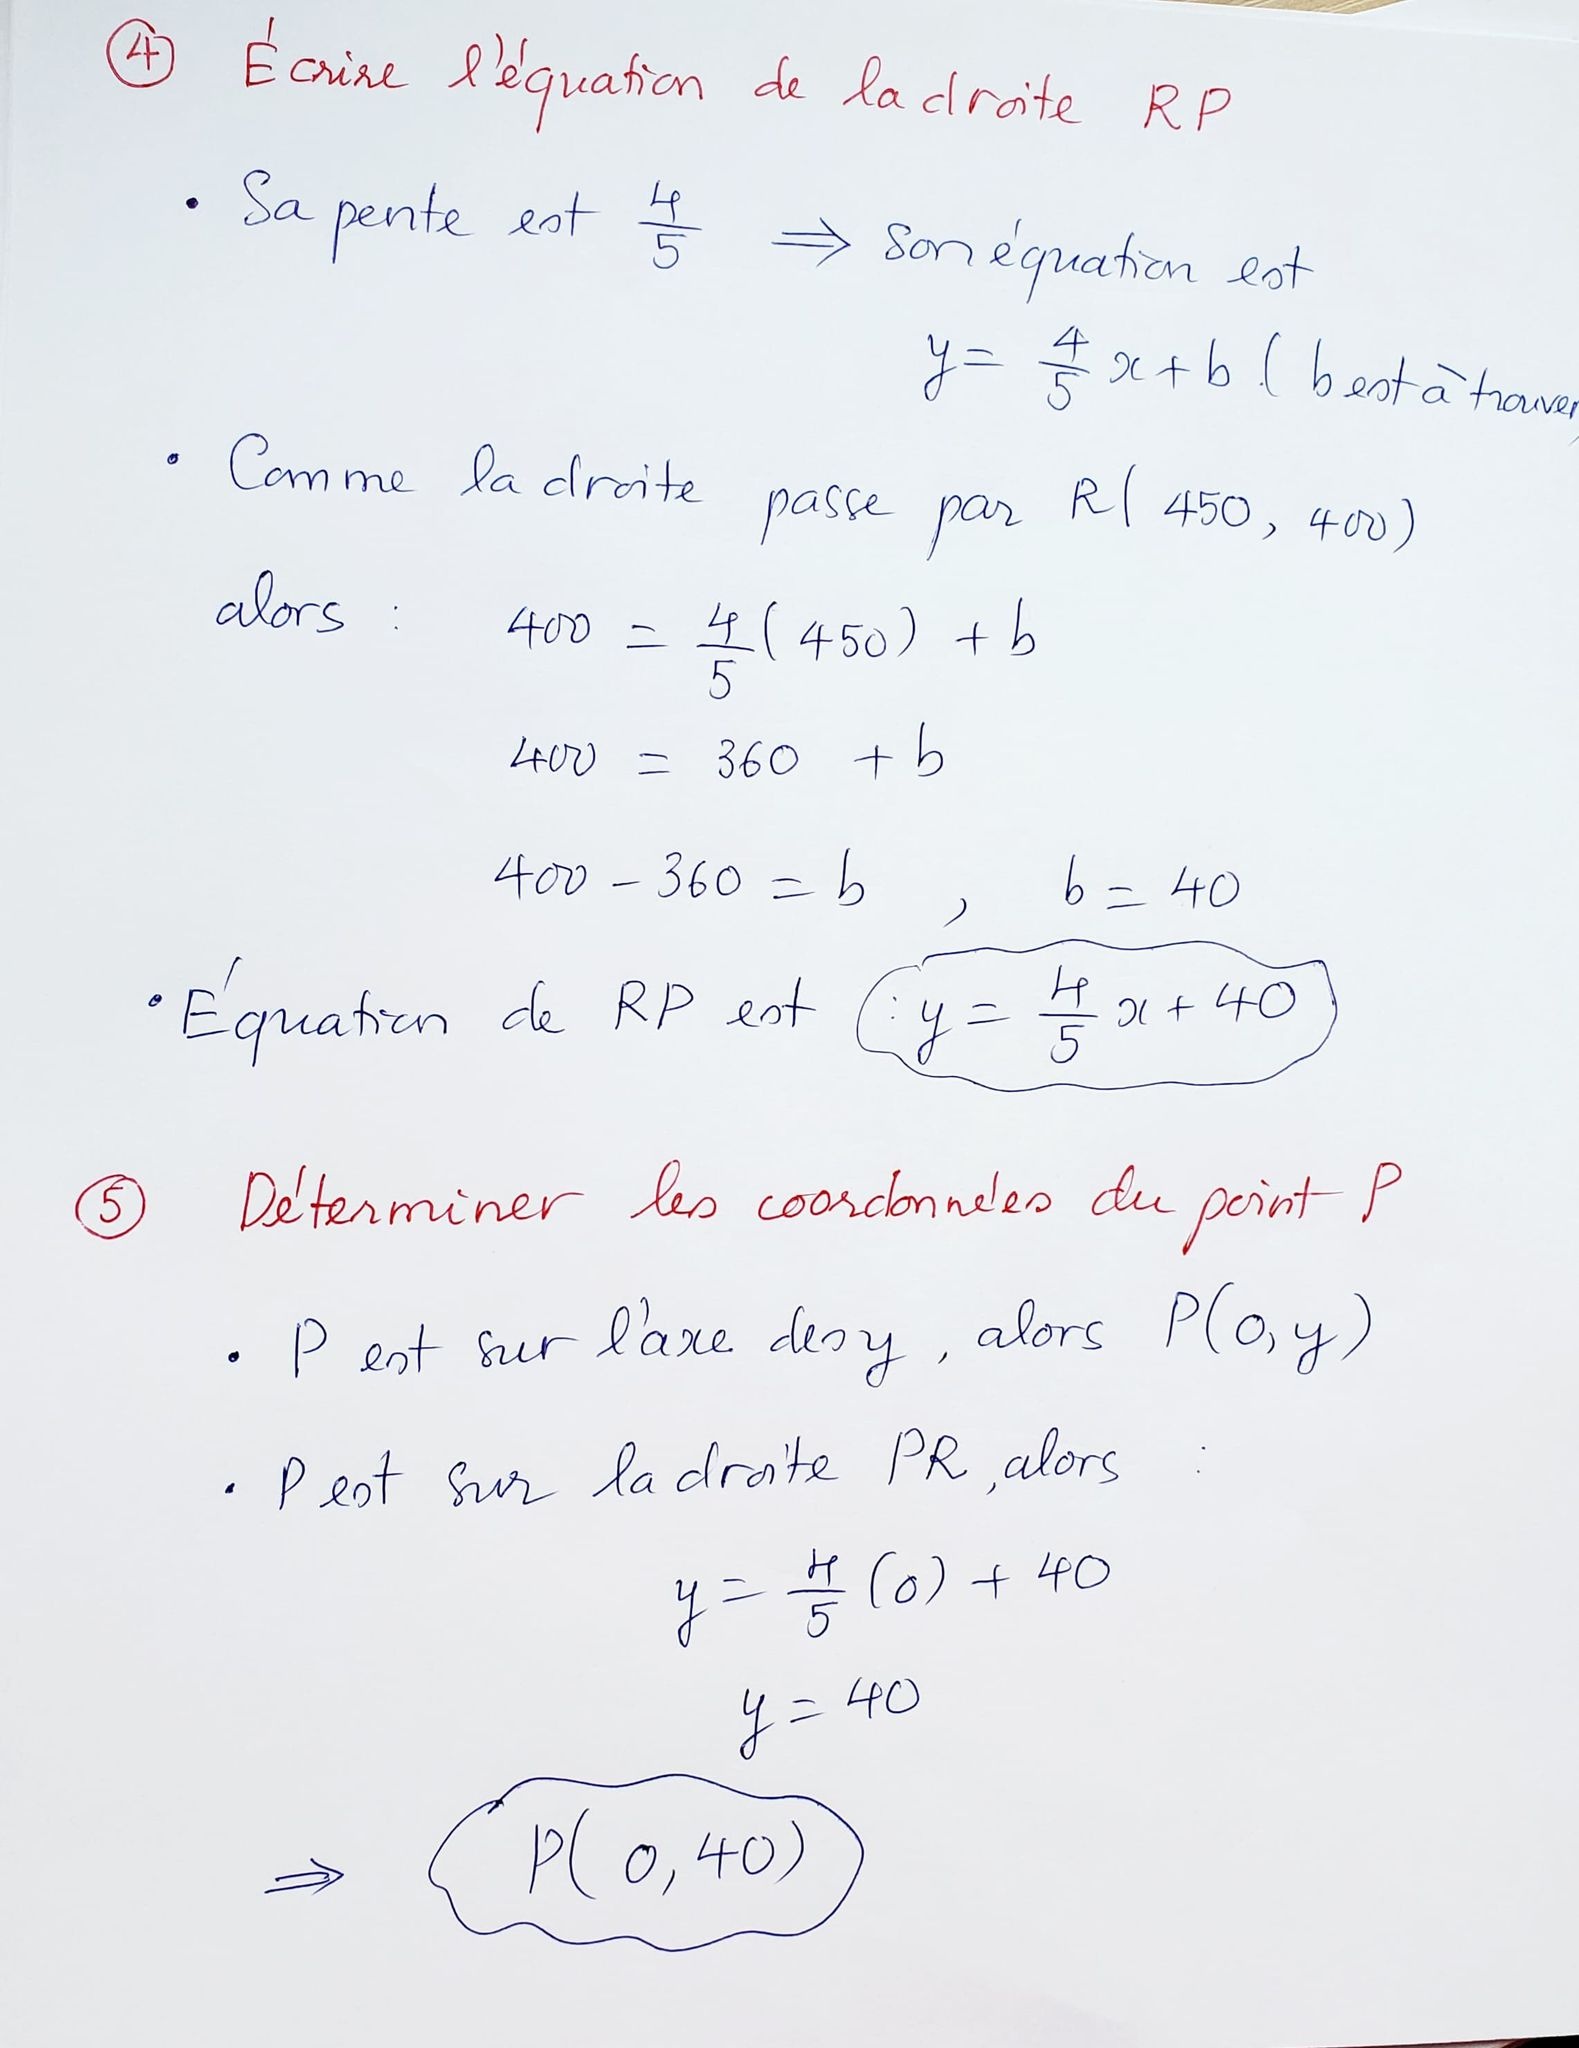 ④ Écrire l'équation de la droite RP
• Sa pente est 4/5 ⇒ son équation est
y = 4/5 x + b ( b est à trouver
• Comme la droite passe par R( 450, 400)
alors : 400 = 4/5 ( 450) + b
400 = 360 + b
400 - 360 = b , b = 40
• Équation de RP est : y = 4/5 x + 40
⑤ Déterminer les coordonnées du point P
• P est sur l'axe des y, alors P(0, y)
• P est sur la droite PR, alors :
y = 4/5 (0) + 40
y = 40
⇒ P( 0, 40)